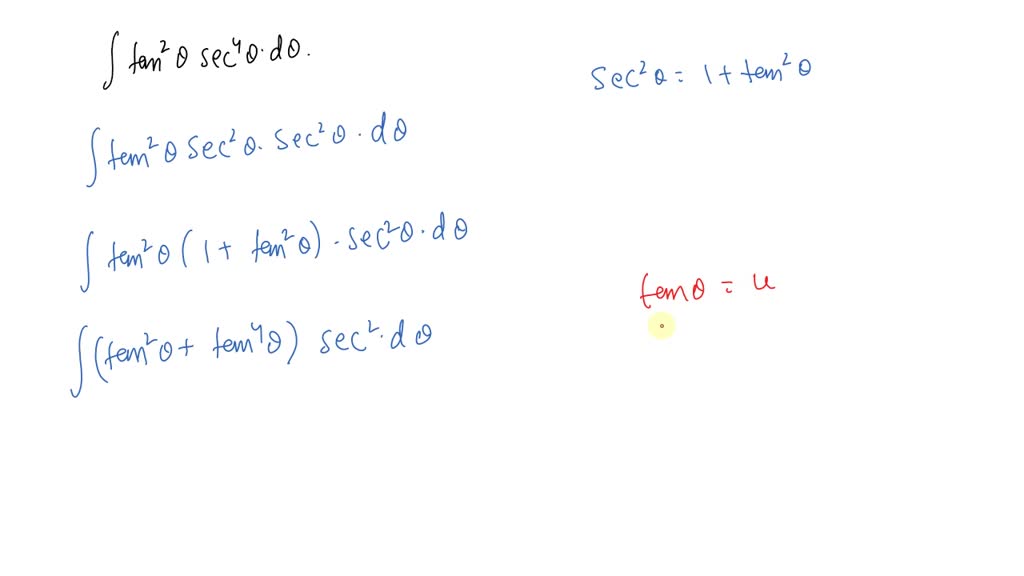 ∫ tan² θ sec⁴ θ · dθ.
sec² θ = 1 + tan² θ
∫ tan² θ sec² θ · sec² θ · dθ
∫ tan² θ (1 + tan² θ) · sec² θ · dθ
tan θ = u
∫ (tan² θ + tan⁴ θ) sec² · dθ